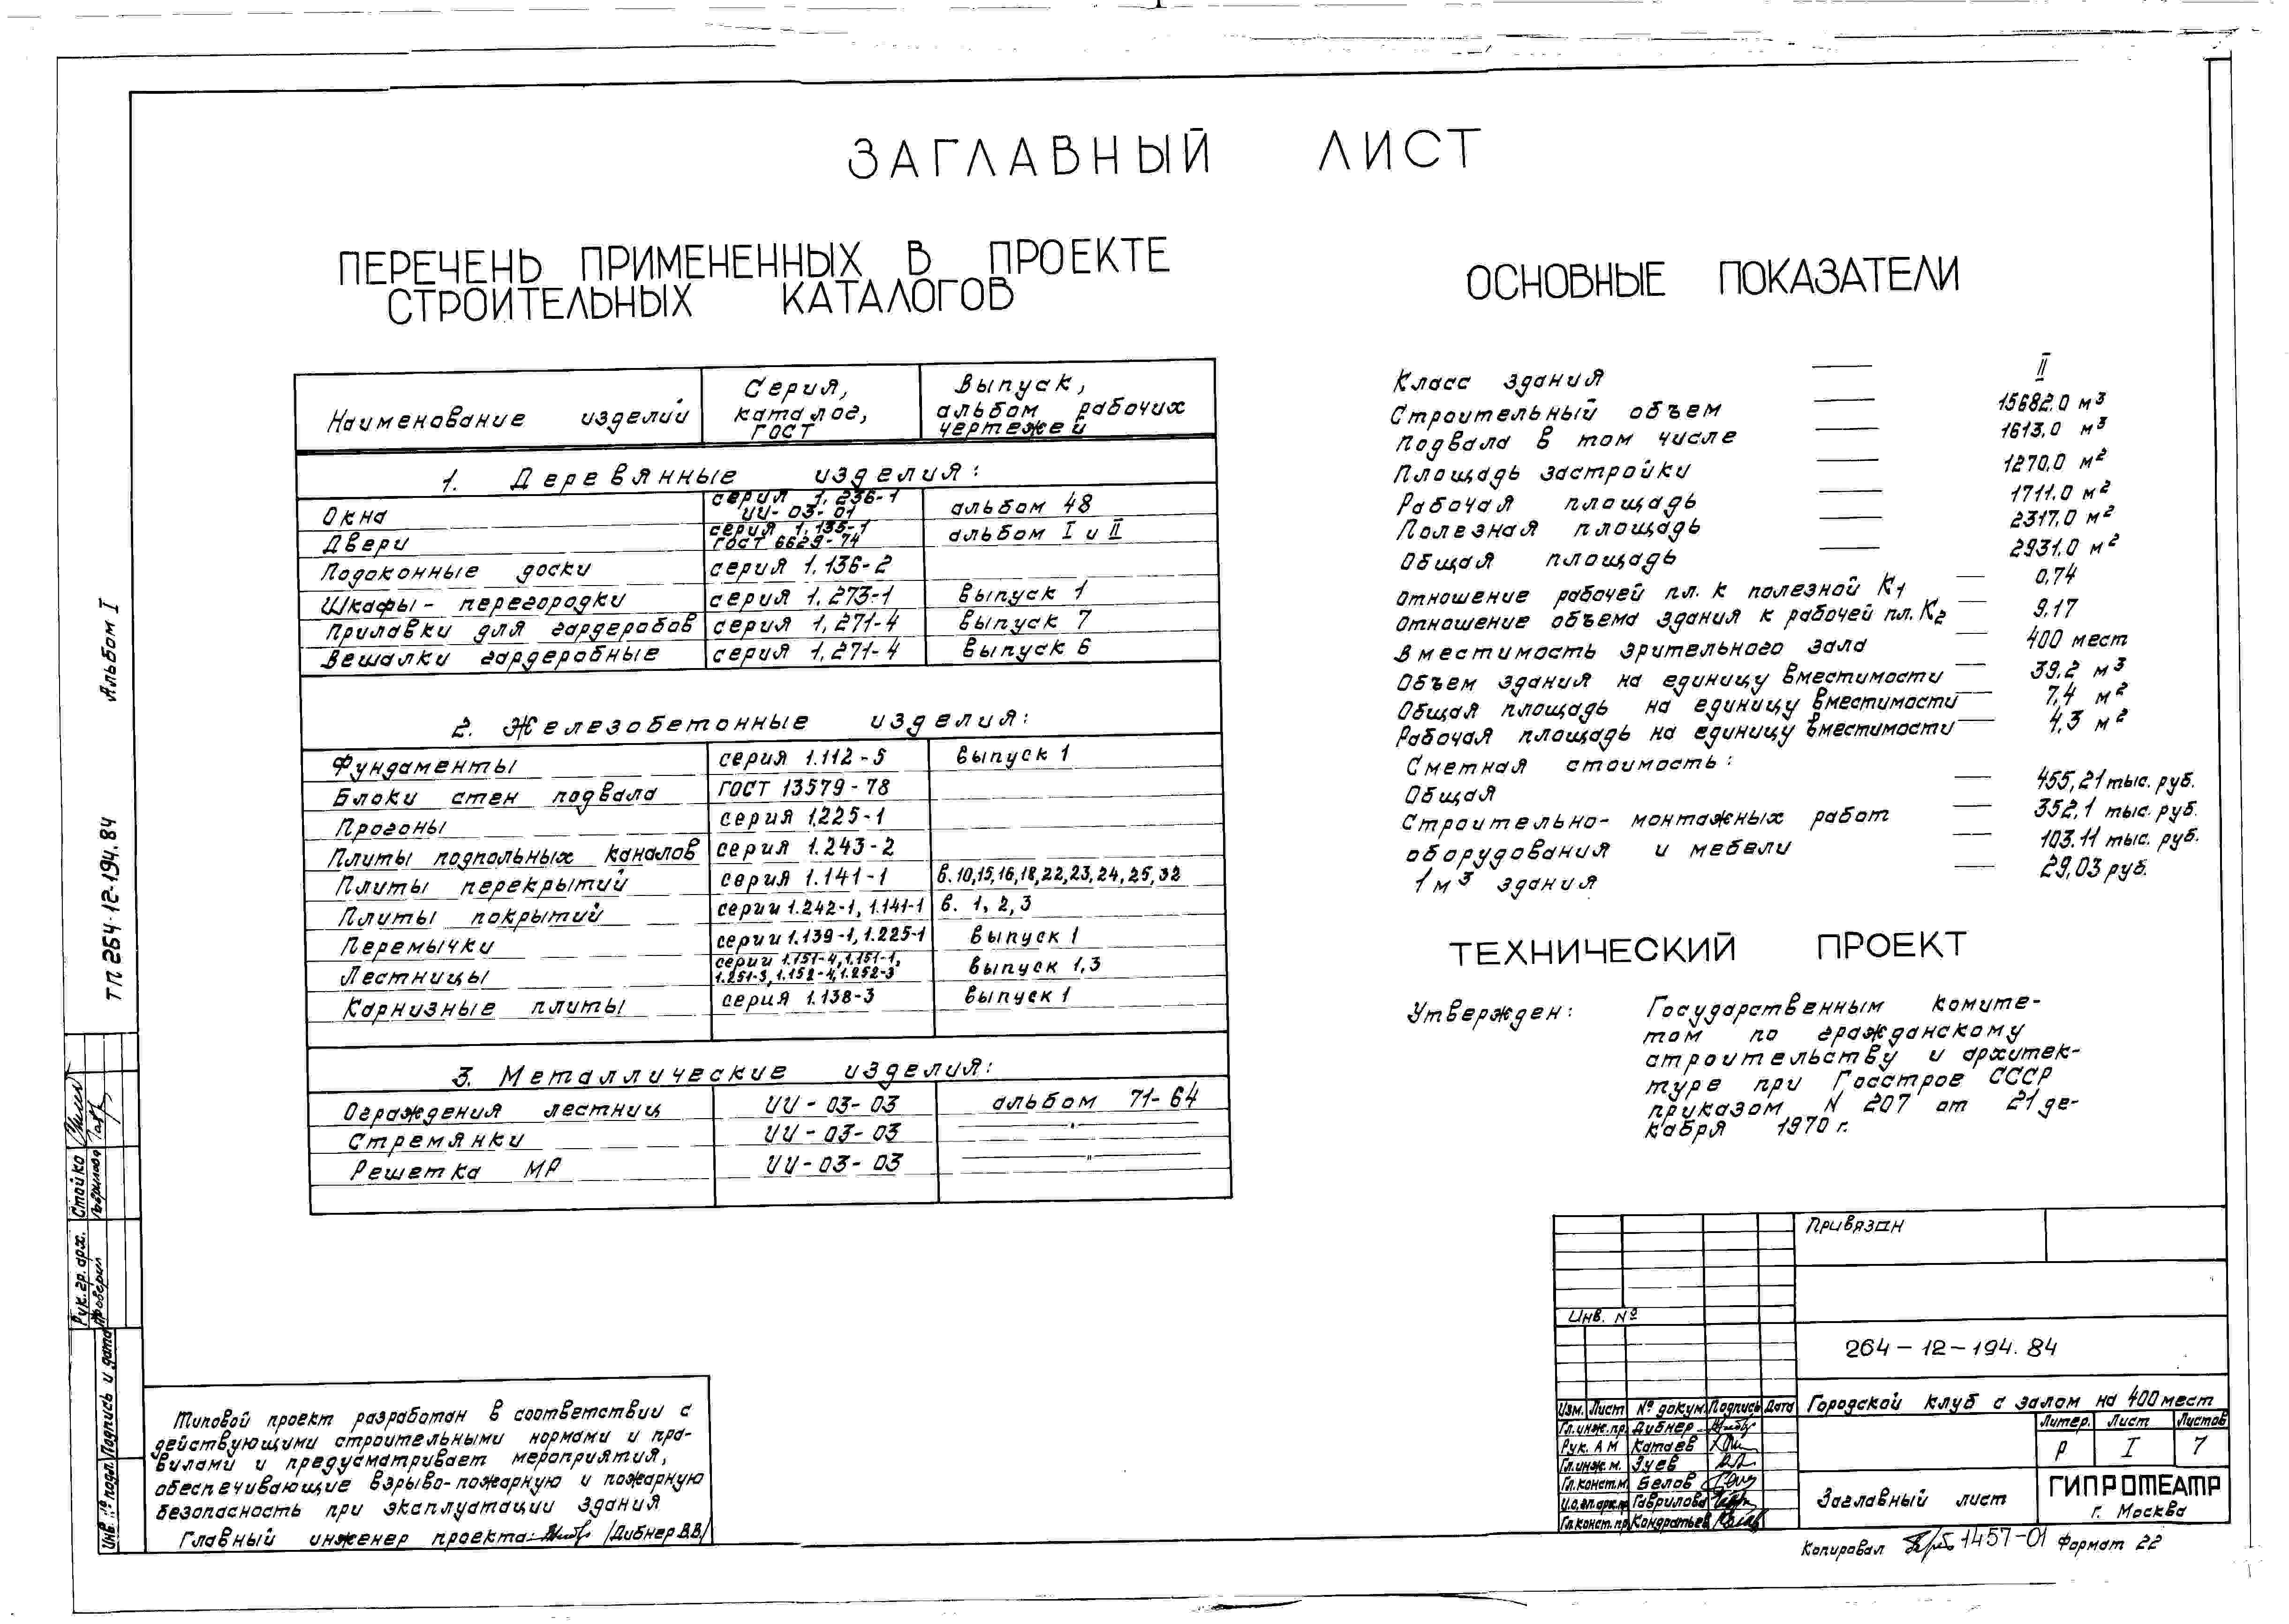 ЗАГЛАВНЫЙ ЛИСТ
ПЕРЕЧЕНЬ ПРИМЕНЕННЫХ В ПРОЕКТЕ
СТРОИТЕЛЬНЫХ КАТАЛОГОВ
Наименование изделий
Серия,
каталог,
ГОСТ
Выпуск,
альбом рабочих
чертежей
1. Деревянные изделия:
Окна
серия 1.236-1
ИИ-03-01
альбом 48
Двери
серия 1.135-1
ГОСТ 6629-74
альбом I и II
Подоконные доски серия 1.136-2
Шкафы-перегородки серия 1.273-1 Выпуск 1
Прилавки для гардеробов серия 1.271-4 Выпуск 7
Вешалки гардеробные серия 1.271-4 Выпуск 6
2. Железобетонные изделия:
Фундаменты серия 1.112-5 выпуск 1
Блоки стен подвала ГОСТ 13579-78
Прогоны серия 1.225-1
Плиты подпольных каналов серия 1.243-2
Плиты перекрытий серия 1.141-1 в.10,15,16,18,22,23,24,25,32
Плиты покрытий серии 1.242-1, 1.141-1 в. 1, 2, 3
Перемычки серии 1.139-1, 1.225-1 выпуск 1
Лестницы
серии 1.151-4, 1.151-1,
1.251-3, 1.152-4, 1.252-3
выпуск 1,3
Карнизные плиты серия 1.138-3 выпуск 1
3. Металлические изделия:
Ограждения лестниц ИИ-03-03 альбом 71-64
Стремянки ИИ-03-03 — " —
Решетка МР ИИ-03-03 — " —
ОСНОВНЫЕ ПОКАЗАТЕЛИ
Класс здания — II
Строительный объем — 15682.0 м³
Подвала в том числе — 1613,0 м³
Площадь застройки — 1270,0 м²
Рабочая площадь — 1711.0 м²
Полезная площадь — 2317,0 м²
Общая площадь — 2931.0 м²
Отношение рабочей пл. к полезной К1 — 0,74
Отношение объема здания к рабочей пл. К2 — 9.17
Вместимость зрительного зала — 400 мест
Объем здания на единицу вместимости — 39,2 м³
Общая площадь на единицу вместимости — 7,4 м²
Рабочая площадь на единицу вместимости — 4,3 м²
Сметная стоимость:
Общая — 455,21 тыс. руб.
Строительно-монтажных работ — 352,1 тыс. руб.
оборудования и мебели — 103.11 тыс. руб.
1 м³ здания — 29,03 руб.
ТЕХНИЧЕСКИЙ ПРОЕКТ
Утвержден: Государственным комите-
том по гражданскому
строительству и архитек-
туре при Госстрое СССР
приказом N 207 от 21 де-
кабря 1970 г.
Альбом I
ТП 264-12-194.84
Рук. гр. арх. Стойко
Проверил Гаврилова
Инв. № подл. Подпись и дата
Типовой проект разработан в соответствии с
действующими строительными нормами и пра-
вилами и предусматривает мероприятия,
обеспечивающие взрыво-пожарную и пожарную
безопасность при эксплуатации здания
Главный инженер проекта: /Дибнер В.В./
Привязан
Инв. №
264-12-194.84
Изм. Лист № докум. Подпись Дата
Городской клуб с залом на 400 мест
Гл.инж.пр. Дибнер
Рук. АМ Катаев
Гл.инж.м. Зуев
Гл.конст.м. Белов
И.о.гл.арх.пр. Гаврилова
Гл.конст.пр. Кондратьев
Литер. Лист Листов
Р I 7
Заглавный лист
ГИПРОТЕАТР
г. Москва
Копировал 1457-01 Формат 22